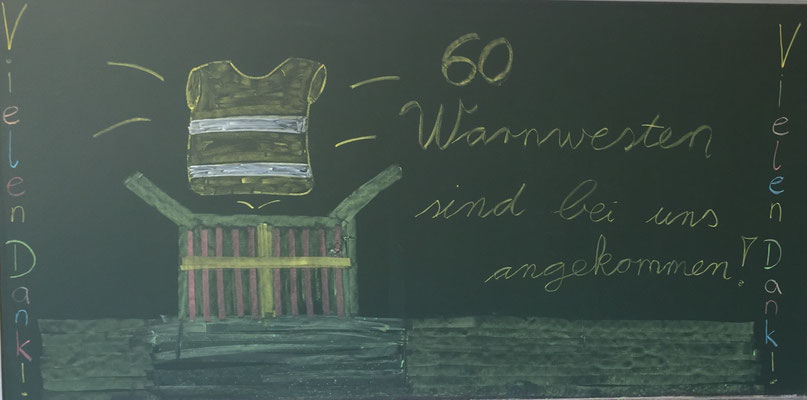 Vielen Dank!
60
Warnwesten
sind bei uns
angekommen!
Vielen Dank!